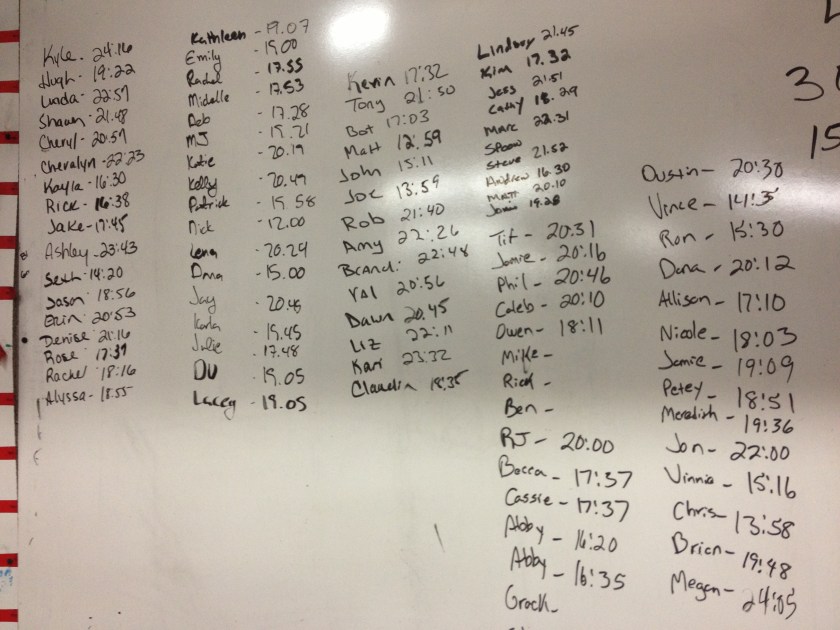 Kyle. 24:16
Hugh - 19:22
Linda - 22:57
Shawn - 21.48
Cheryl - 20:57
Cheralyn - 22:23
Kayla - 16:30
Rick - 16:38
Jake - 17:45
Ashley - 23:43
Seth - 14:20
Jason 18:56
Erin 20:53
Denise 21:16
Rose 17:37
Rachel 18:16
Alyssa - 18:55
Kathleen - 19.07
Emily - 19.00
Rachel - 17.55
Midelle - 17.53
Deb - 17.28
MJ - 19.21
Katie - 20.19
Kelly - 20.49
Patrick - 19.58
Nick - 12.00
Lena - 20.29
Dana - 15.00
Jay - 20.48
Karla - 19.45
Julie - 17.48
DU - 19.05
Lacey - 19.05
Kevin 17:32
Tony 21:50
Bot 17:03
Matt 12:59
John 15:11
Joe 13:59
Rob 21:40
Amy 22:26
Brandi 22:48
Val 20:56
Dawn 20.45
Liz 22:11
Kari 23:32
Claudia 18:35
Lindsay 21.45
Kim 17.32
Jess 21:51
Cathy 18.29
Marc 22.31
Spoon 21.52
Steve
Andrew 16.30
Matt 20.10
Jamie 19.28
Tif - 20:31
Jamie - 20:16
Phil - 20:46
Caleb - 20:10
Owen - 18:11
Mike -
Rick -
Ben -
RJ - 20:00
Becca - 17:37
Cassie - 17:37
Abby - 16:20
Abby - 16:35
Grock -
Dustin - 20:30
Vince -
Ron - 15:30
Dana - 20:12
Allison - 17:10
Nicole - 18:03
Jamie - 19:09
Petey - 18:51
Meredith - 19:36
Jon - 22:00
Vinnie - 15:16
Chris - 13:58
Brian - 19:48
Megan - 24:05
30
15